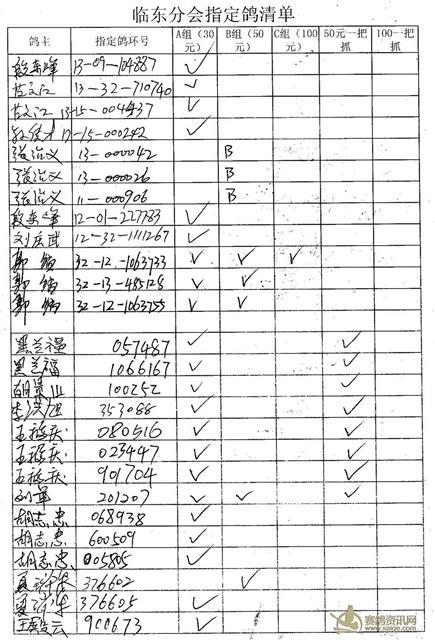 临东分会指定鸽清单
鸽主 指定鸽环号 A组(30元) B组(50元) C组(100元) 50元一把抓 100一把抓
13-09-104887 ✓
13-32-710740 ✓
13-15-004437 ✓
12-15-000242 ✓
张治义 13-000042 B
张治义 13-000026 B
张治义 11-000906 B
12-01-227783 ✓
刘庆武 12-32-1111267 ✓
郭 32-12-1063733 ✓ ✓ ✓
郭 32-13-485128 ✓ ✓
郭 32-12-1063755 ✓ ✓
黑兰福 057487 ✓ ✓
黑兰福 1066167 ✓ ✓
100252 ✓ ✓
李洪旭 353088 ✓ ✓
王振庆 080516 ✓ ✓
王振庆 023447 ✓ ✓
王振庆 901704 ✓ ✓
刘军 201207 ✓ ✓ ✓
胡志忠 068938 ✓
胡志忠 600509 ✓
胡志忠 005805 ✓
376602 ✓
376605 ✓
王 云 900673 ✓
赛鸽资讯网
www.saige.com